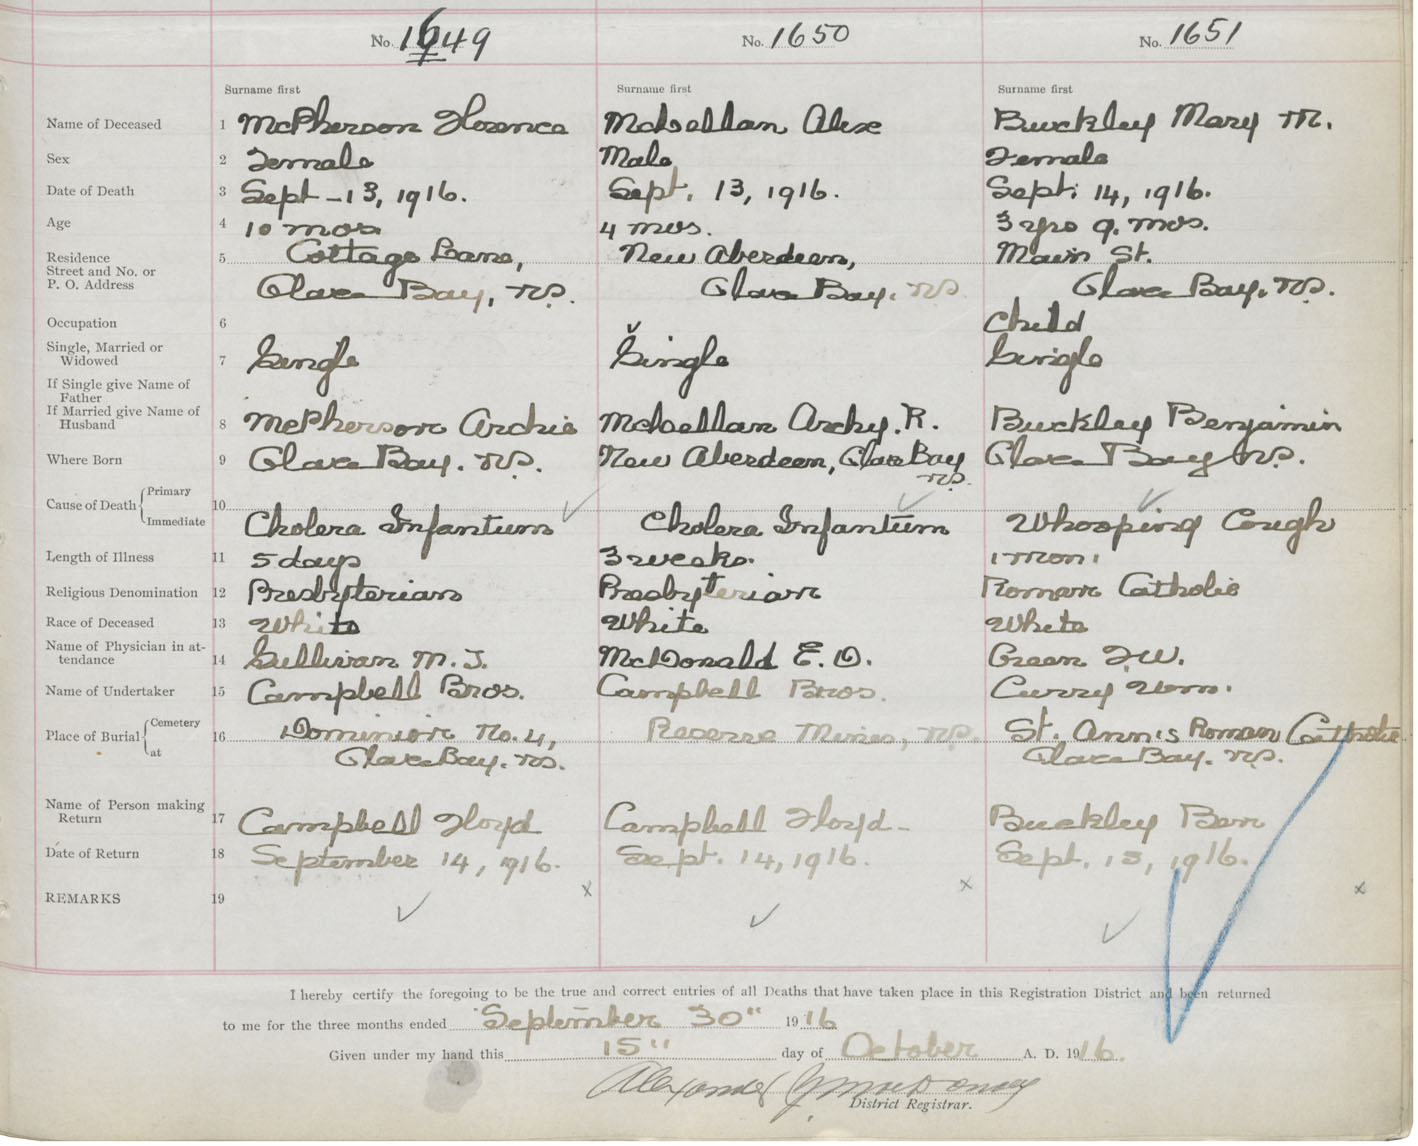 No. 1649 No. 1650 No. 1651
Surname first Surname first Surname first
Name of Deceased 1 McPherson Florence McLellan Alex Buckley Mary M.
Sex 2 Female Male Female
Date of Death 3 Sept - 13, 1916. Sept. 13, 1916. Sept. 14, 1916.
Age 4 10 mos 4 mos. 3 yrs 9. mos.
Residence 5 Cottage Lane, New Aberdeen, Main St.
Street and No. or
P. O. Address Glace Bay, N.S. Glace Bay, N.S. Glace Bay, N.S.
Occupation 6 Child
Single, Married or
Widowed 7 Single Single Single
If Single give Name of
Father
If Married give Name of
Husband 8 McPherson Archie McLellan Archy. R. Buckley Benjamin
Where Born 9 Glace Bay. N.S. New Aberdeen, Glace Bay Glace Bay N.S.
N.S.
Cause of Death Primary 10
Immediate Cholera Infantum Cholera Infantum Whooping Cough
Length of Illness 11 5 days 3 weeks. 1 mon.
Religious Denomination 12 Presbyterian Presbyterian Roman Catholic
Race of Deceased 13 White White White
Name of Physician in at-
tendance 14 Sullivan M. J. McDonald E. O. Green F.W.
Name of Undertaker 15 Campbell Bros. Campbell Bros. Curry Wm.
Place of Burial Cemetery 16 Dominion No. 4, Reserve Mines, N.S. St. Ann's Roman Catholic
at Glace Bay. N.S. Glace Bay. N.S.
Name of Person making
Return 17 Campbell Floyd Campbell Floyd - Buckley Ben
Date of Return 18 September 14, 1916. Sept. 14, 1916. Sept. 15, 1916.
REMARKS 19
I hereby certify the foregoing to be the true and correct entries of all Deaths that have taken place in this Registration District and been returned
to me for the three months ended September 30" 1916
Given under my hand this 15" day of October A. D. 1916.
Alexander
District Registrar.